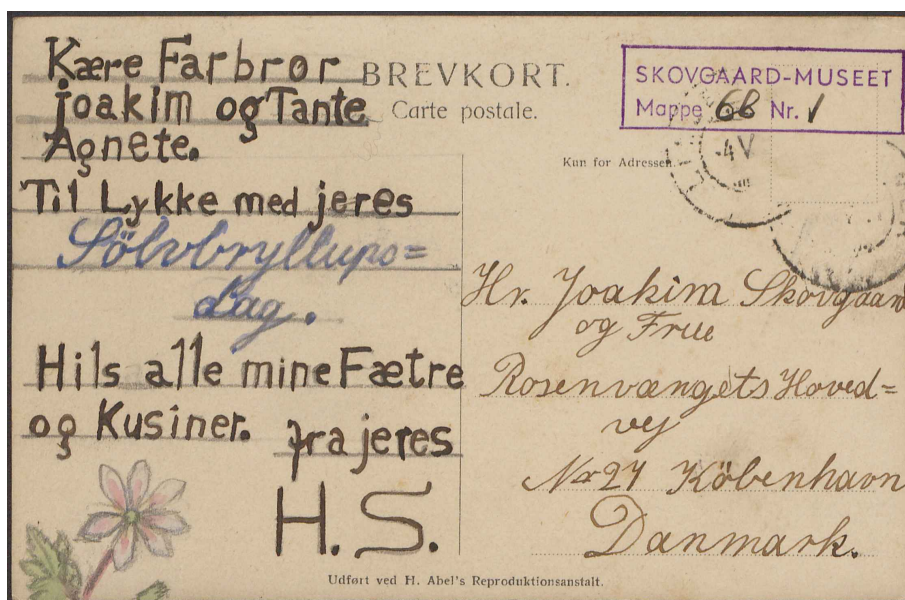 Kære Farbror
joakim og Tante
Agnete.
Til Lykke med jeres
Sölvbryllups=
dag.
Hils alle mine Fætre
og Kusiner. fra jeres
H.S.
BREVKORT.
Carte postale.
SKOVGAARD-MUSEET
Mappe 6B Nr. 1
Kun for Adressen.
Hr. Joakim Skovgaard
og Frue
Rosenvængets Hoved=
vej
Nr 27 Köbenhavn
Danmark.
Udført ved H. Abel's Reproduktionsanstalt.